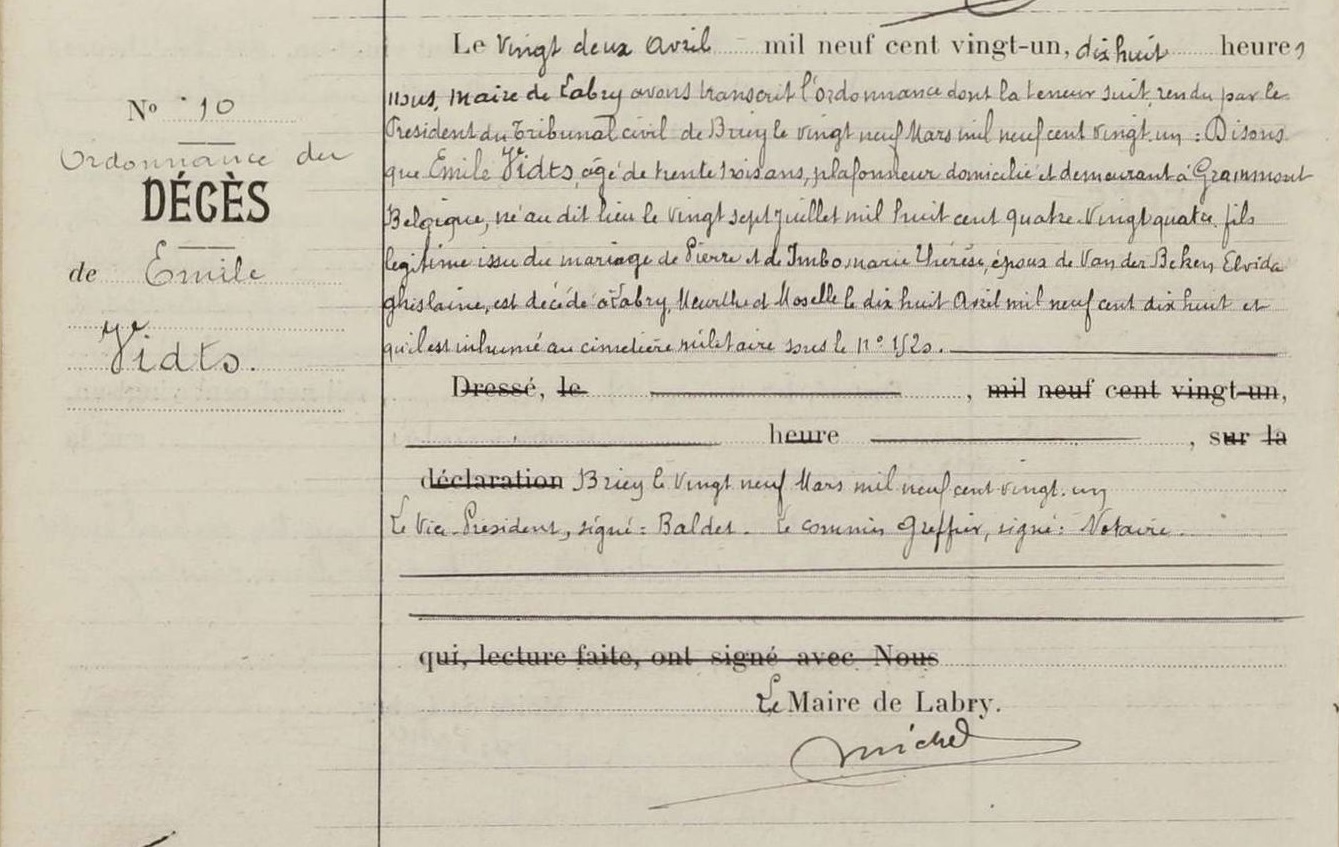 Le vingt deux avril mil neuf cent vingt-un, dix huit heures
N° 10
nous, maire de Labry avons transcrit l'ordonnance dont la teneur suit, rendu par le
Président du Tribunal civil de Briey le vingt neuf Mars mil neuf cent vingt. un : Disons
Ordonnance du
DÉCÈS
que Emile Vidts, âgé de trente trois ans, plafonneur domicilié et demeurant à Grammont
Belgique, né au dit lieu le vingt sept juillet mil huit cent quatre-vingt quatre fils
de Emile
Vidts.
légitime issu du mariage de Pierre et de Imbo marie Thérèse, époux de Van der Beken Elvida
ghislaine, est décédé à Labry, Meurthe et Moselle le dix huit avril mil neuf cent dix huit et
qu'il est inhumé au cimetière militaire sous le n° 1520.
Dressé, le , mil neuf cent vingt-un,
heure , sur la
déclaration Briey le vingt neuf Mars mil neuf cent vingt. un
Le Vice-Président, signé : Baldet. Le commis Greffier, signé : Notaire.
qui, lecture faite, ont signé avec Nous
Le Maire de Labry.
Michel